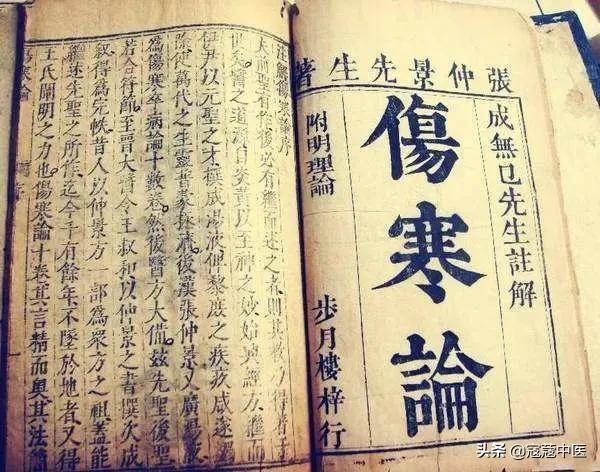 張仲景先生著
成無已先生註解
傷寒論
附明理論
步月樓梓行
注解傷寒論序
夫前聖有作後必有繼而述之者則其教乃得著于
世矣醫之道源自炎黃以至神之妙始興經方繼而
伊尹以元聖之才撰成湯液俾黎庶之疾疢咸遂蠲
除使萬代之生靈普蒙拯濟後漢張仲景又廣湯液
為傷寒卒病論十數卷然後醫方大備茲先聖後聖
若合符節至晉太醫令王叔和以仲景之書撰次成
叙得為完帙昔人以仲景方一部為眾方之祖蓋能
繼述先聖之所作迄今千有餘年不墜於地者又得
王氏闡明之力也傷寒論十卷其言精而奧其法簡
傷寒論
头条 @寇蔻中医